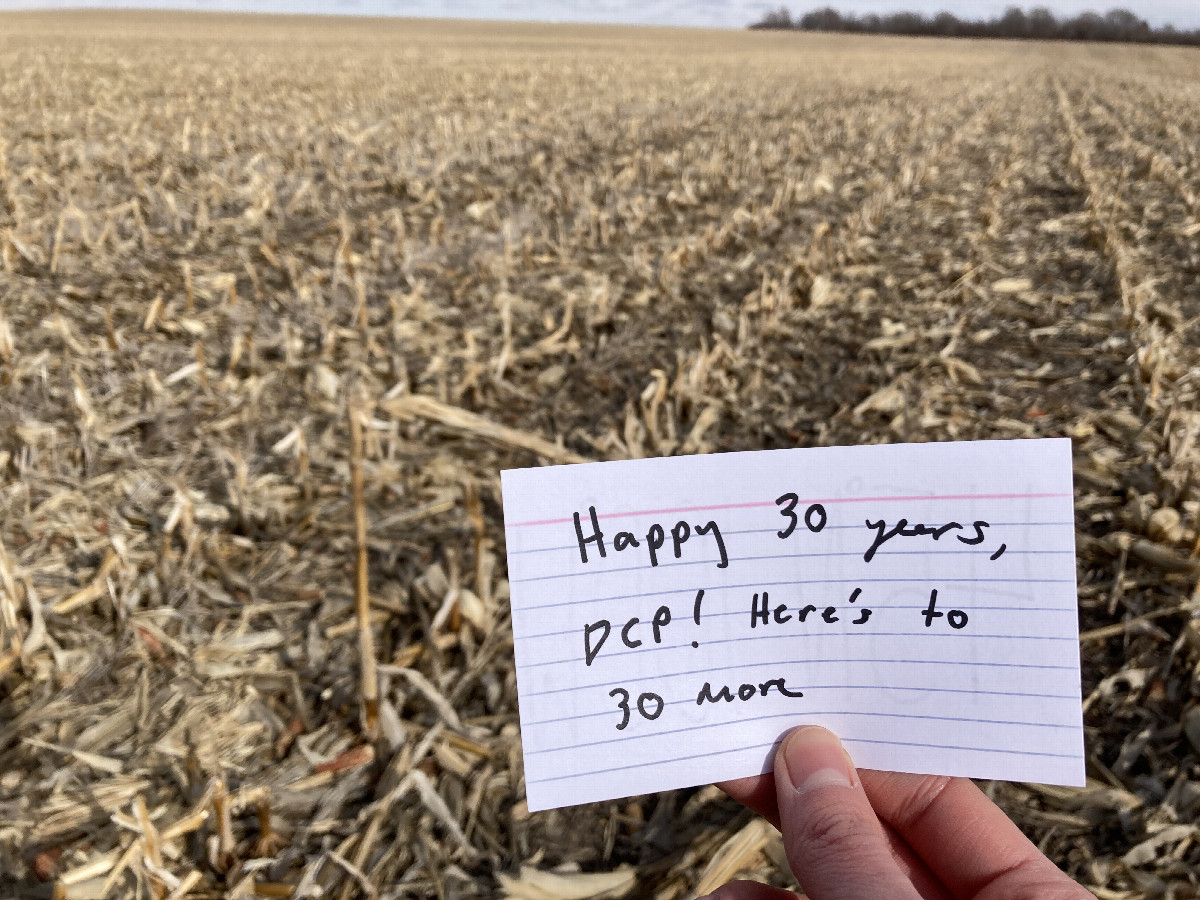 Happy 30 years,
DCP! Here's to
30 more